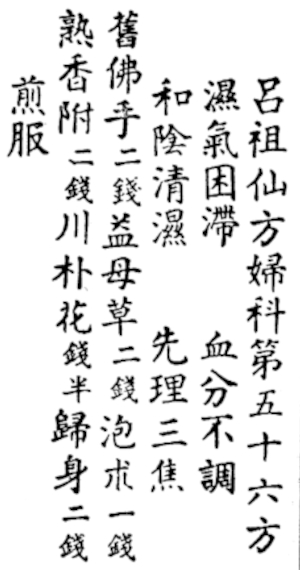 呂祖仙方婦科第五十六方
濕氣困滯 血分不調
和陰清濕 先理三焦
舊佛手二錢益母草二錢泡朮一錢
熟香附二錢川朴花錢半歸身二錢
煎服